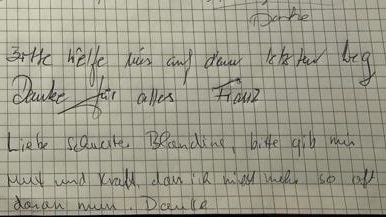 Danke
Bitte helfe mir auf dem letzten Weg
Danke für alles Franz
Liebe Schwester Blandine, bitte gib mir
Mut und Kraft, dass ich nicht mehr so oft
daran muss. Danke